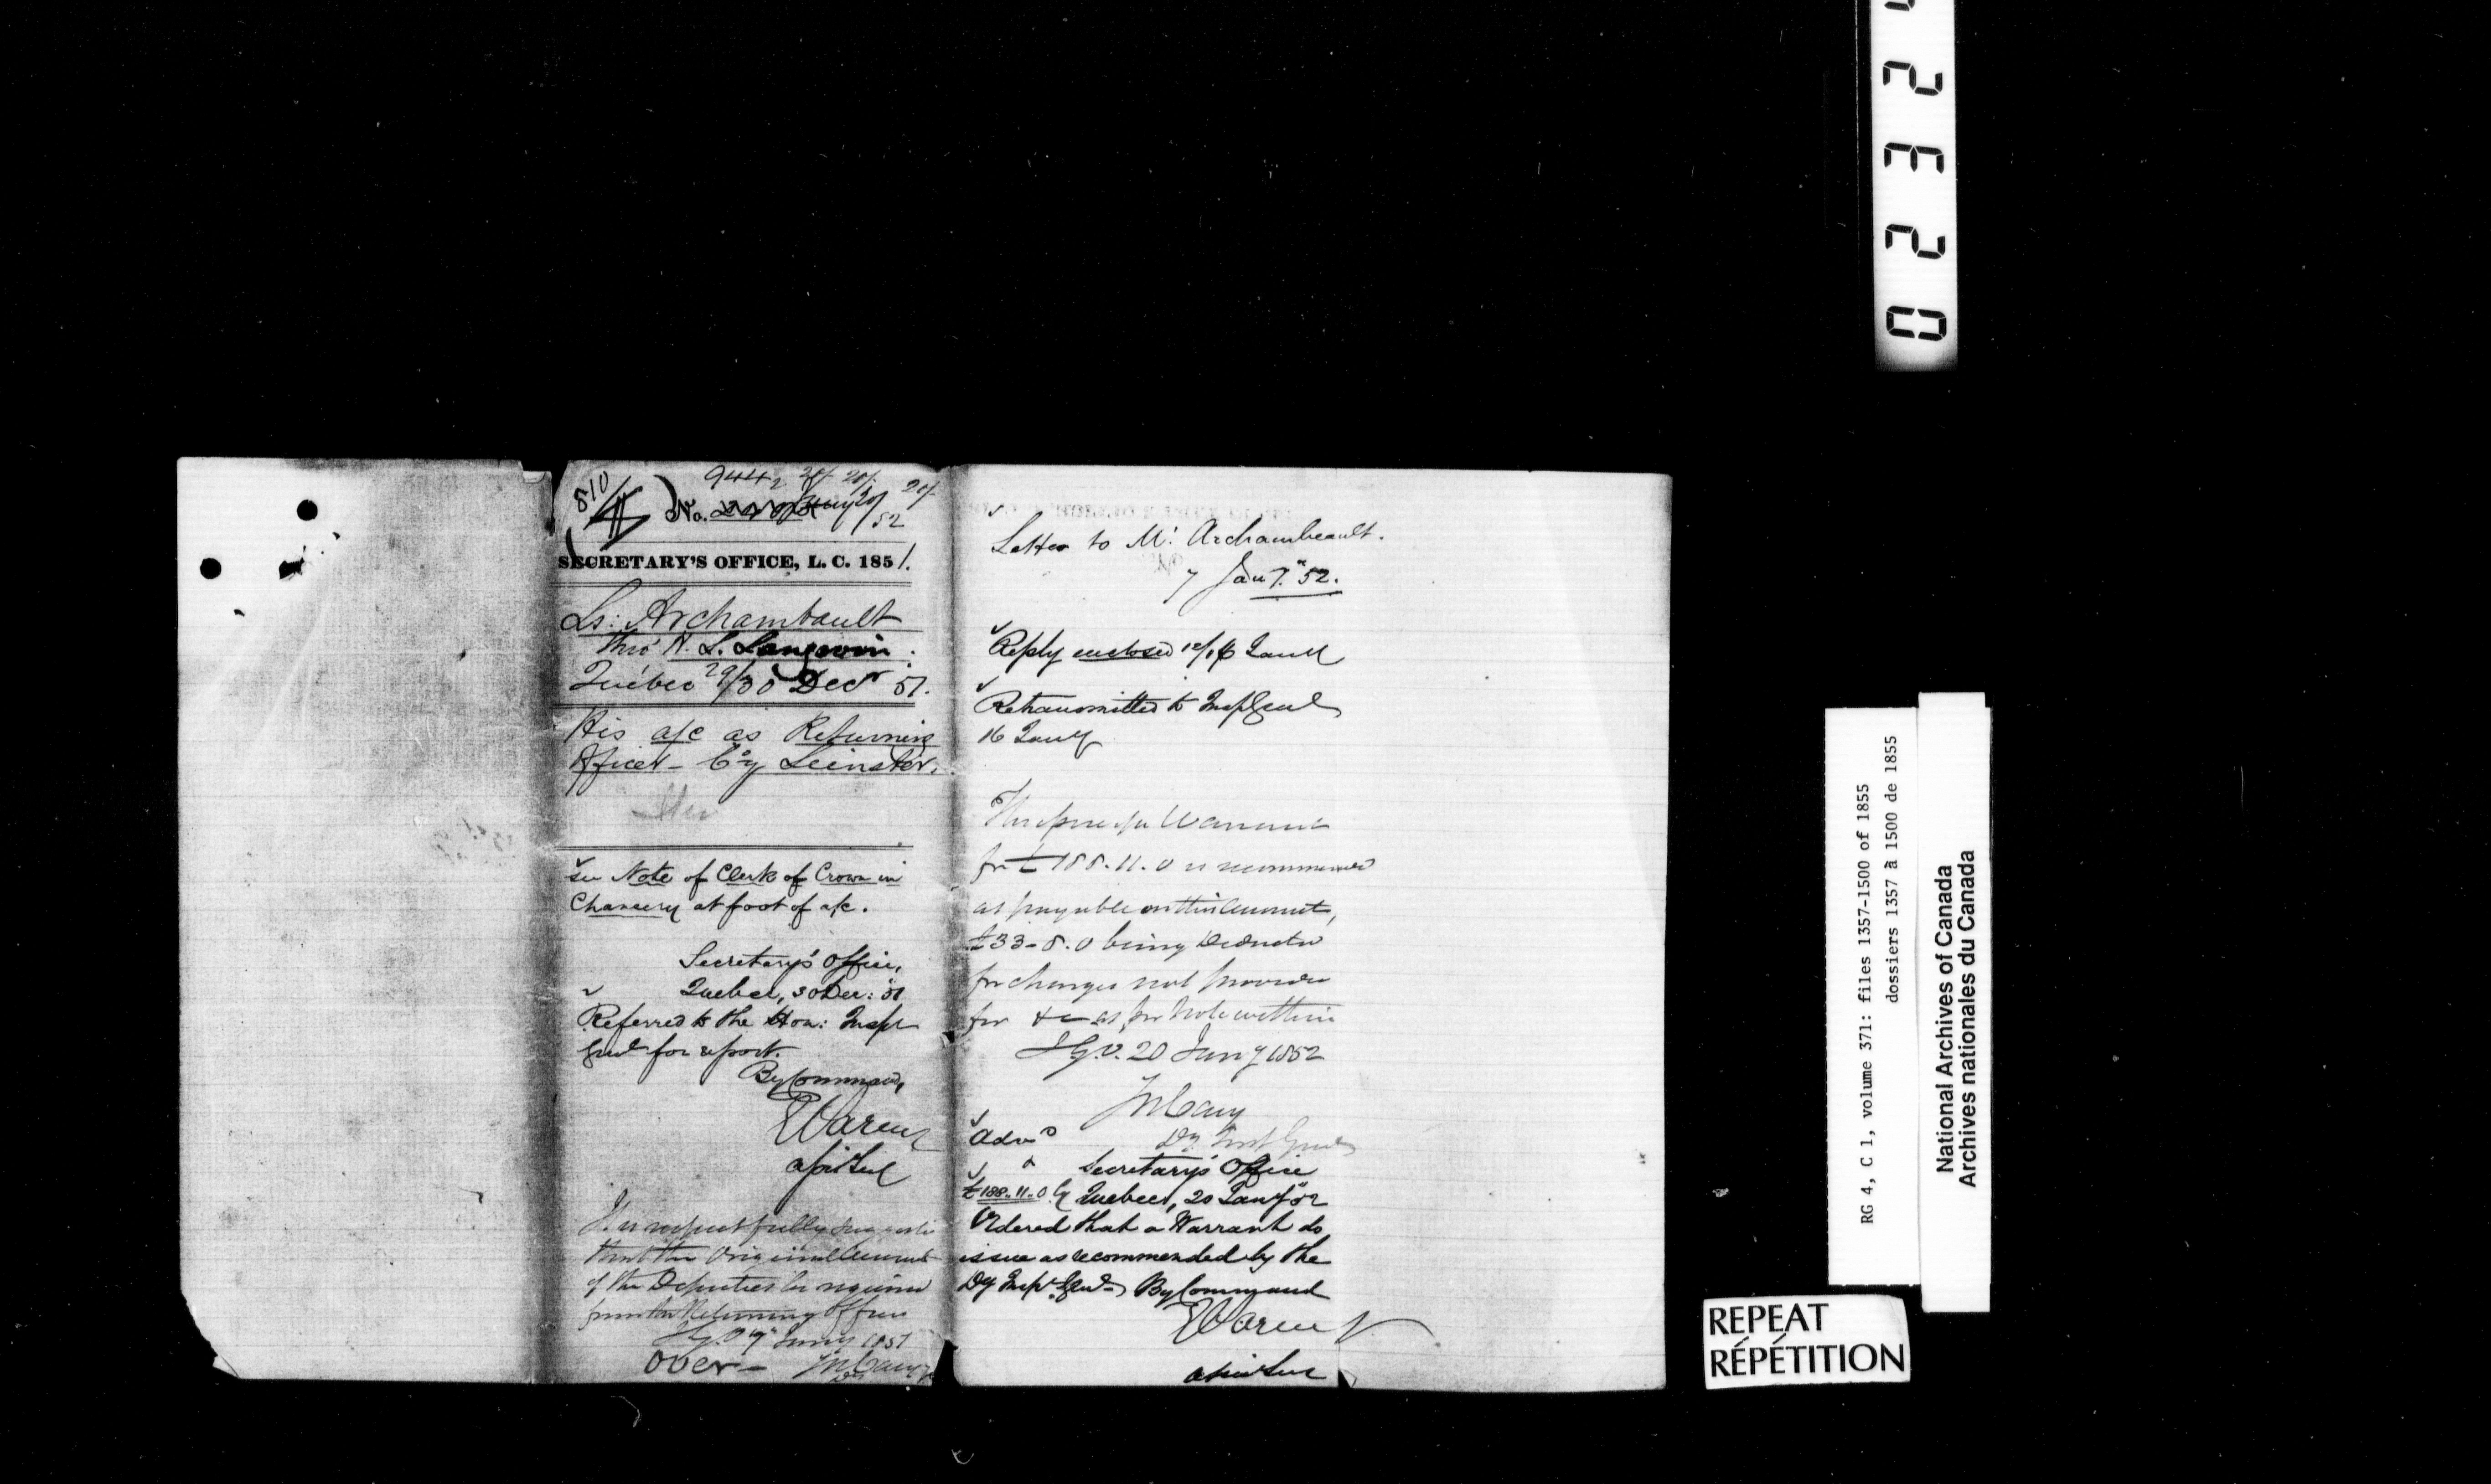 810
9442 20/. 20/. 20/.
No.
52
SECRETARY'S OFFICE, L. C. 1851.
Ls: Archambault
thro' H. L. Langevin.
Quebec 29/30 Decr 51.
His a/c as Returning
Officer - Coy Leinster.
see Note of Clerk of Crown in
Chancery at foot of a/c.
Secretary's Office,
Quebec, 30 Dec: 51
Referred to the Hon: Inspr
Genl for report.
By Command,
It is respectfully suggested
that the Original Account
of the Deputies be required
from the Returning Officer
I.G.O. 7 Jany 1851
Over - Jos Cary
Letter to Mr. Archambeault.
7 Jany. "52.
Reply enclosed 12/16 Jany
Retransmitted to Insp Genl
16 Jany
The issue of a Warrant
for £188.11.0 is recommended
as payable on this Account,
£33-8.0 being Deducted
for charges not provided
for &c as per Note within
I.G.O. 20 Jany 1852
Jos Cary
Dy. Insp Genl
£188..11..0 Cy
Secretary's Office
Quebec, 20 Jany 52
Ordered that a Warrant do
issue as recommended by the
Dy Inspr. Genl - By Command
0 2 3 2
RG 4, C 1, volume 371: files 1357-1500 of 1855
dossiers 1357 à 1500 de 1855
National Archives of Canada
Archives nationales du Canada
REPEAT
RÉPÉTITION